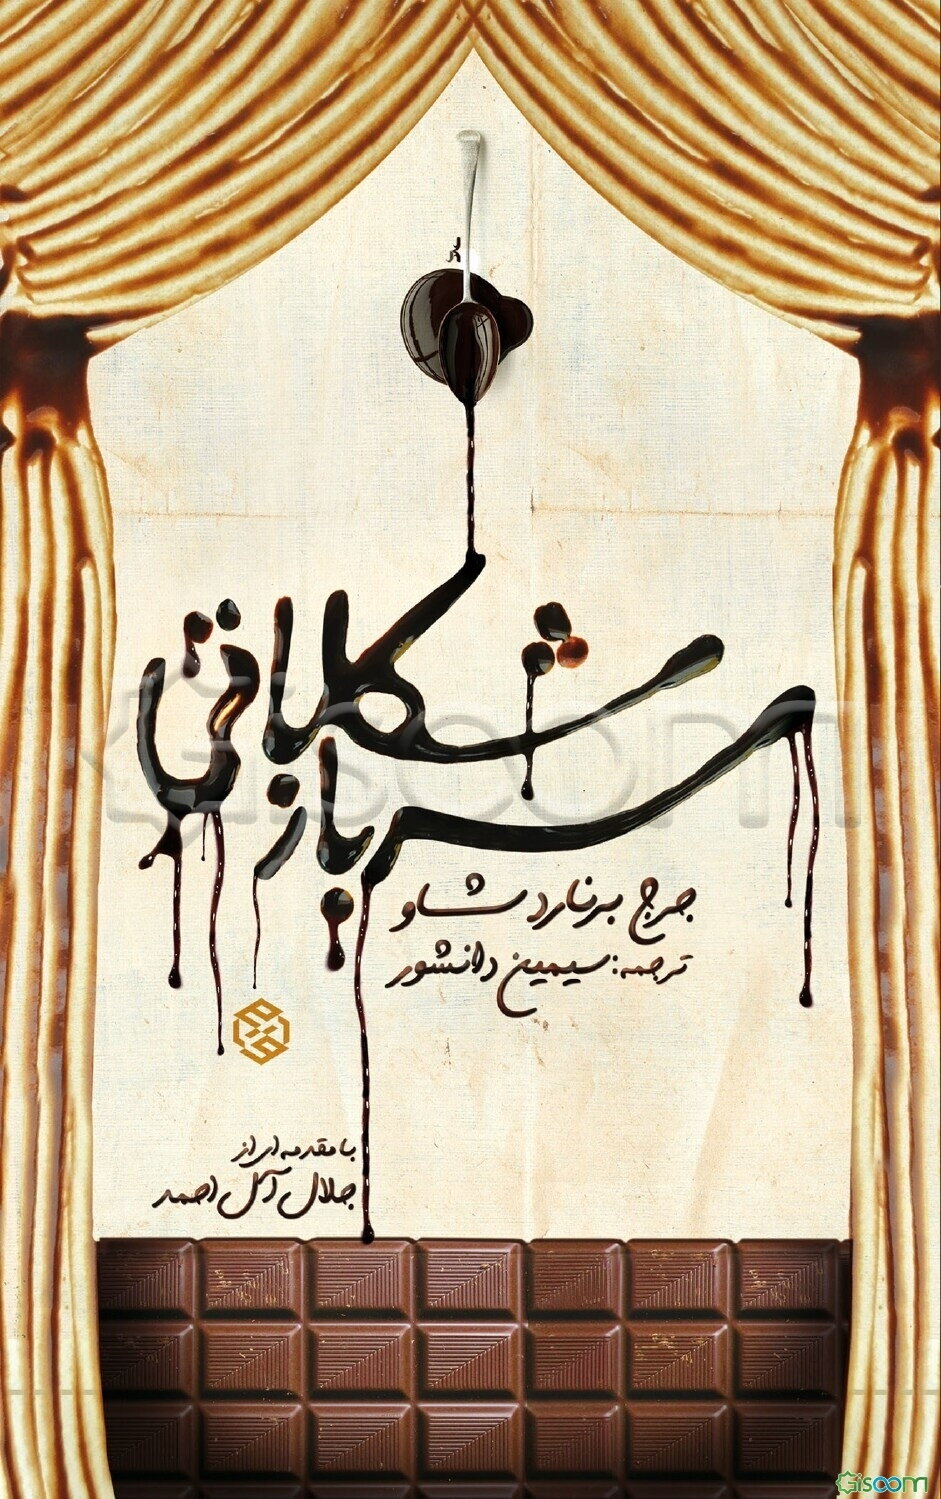 سرباز شکلاتی
جرج برنارد شاو
ترجمه: سیمین دانشور
با مقدمه‌ای از
جلال آل احمد
Gisoom
Gisoom